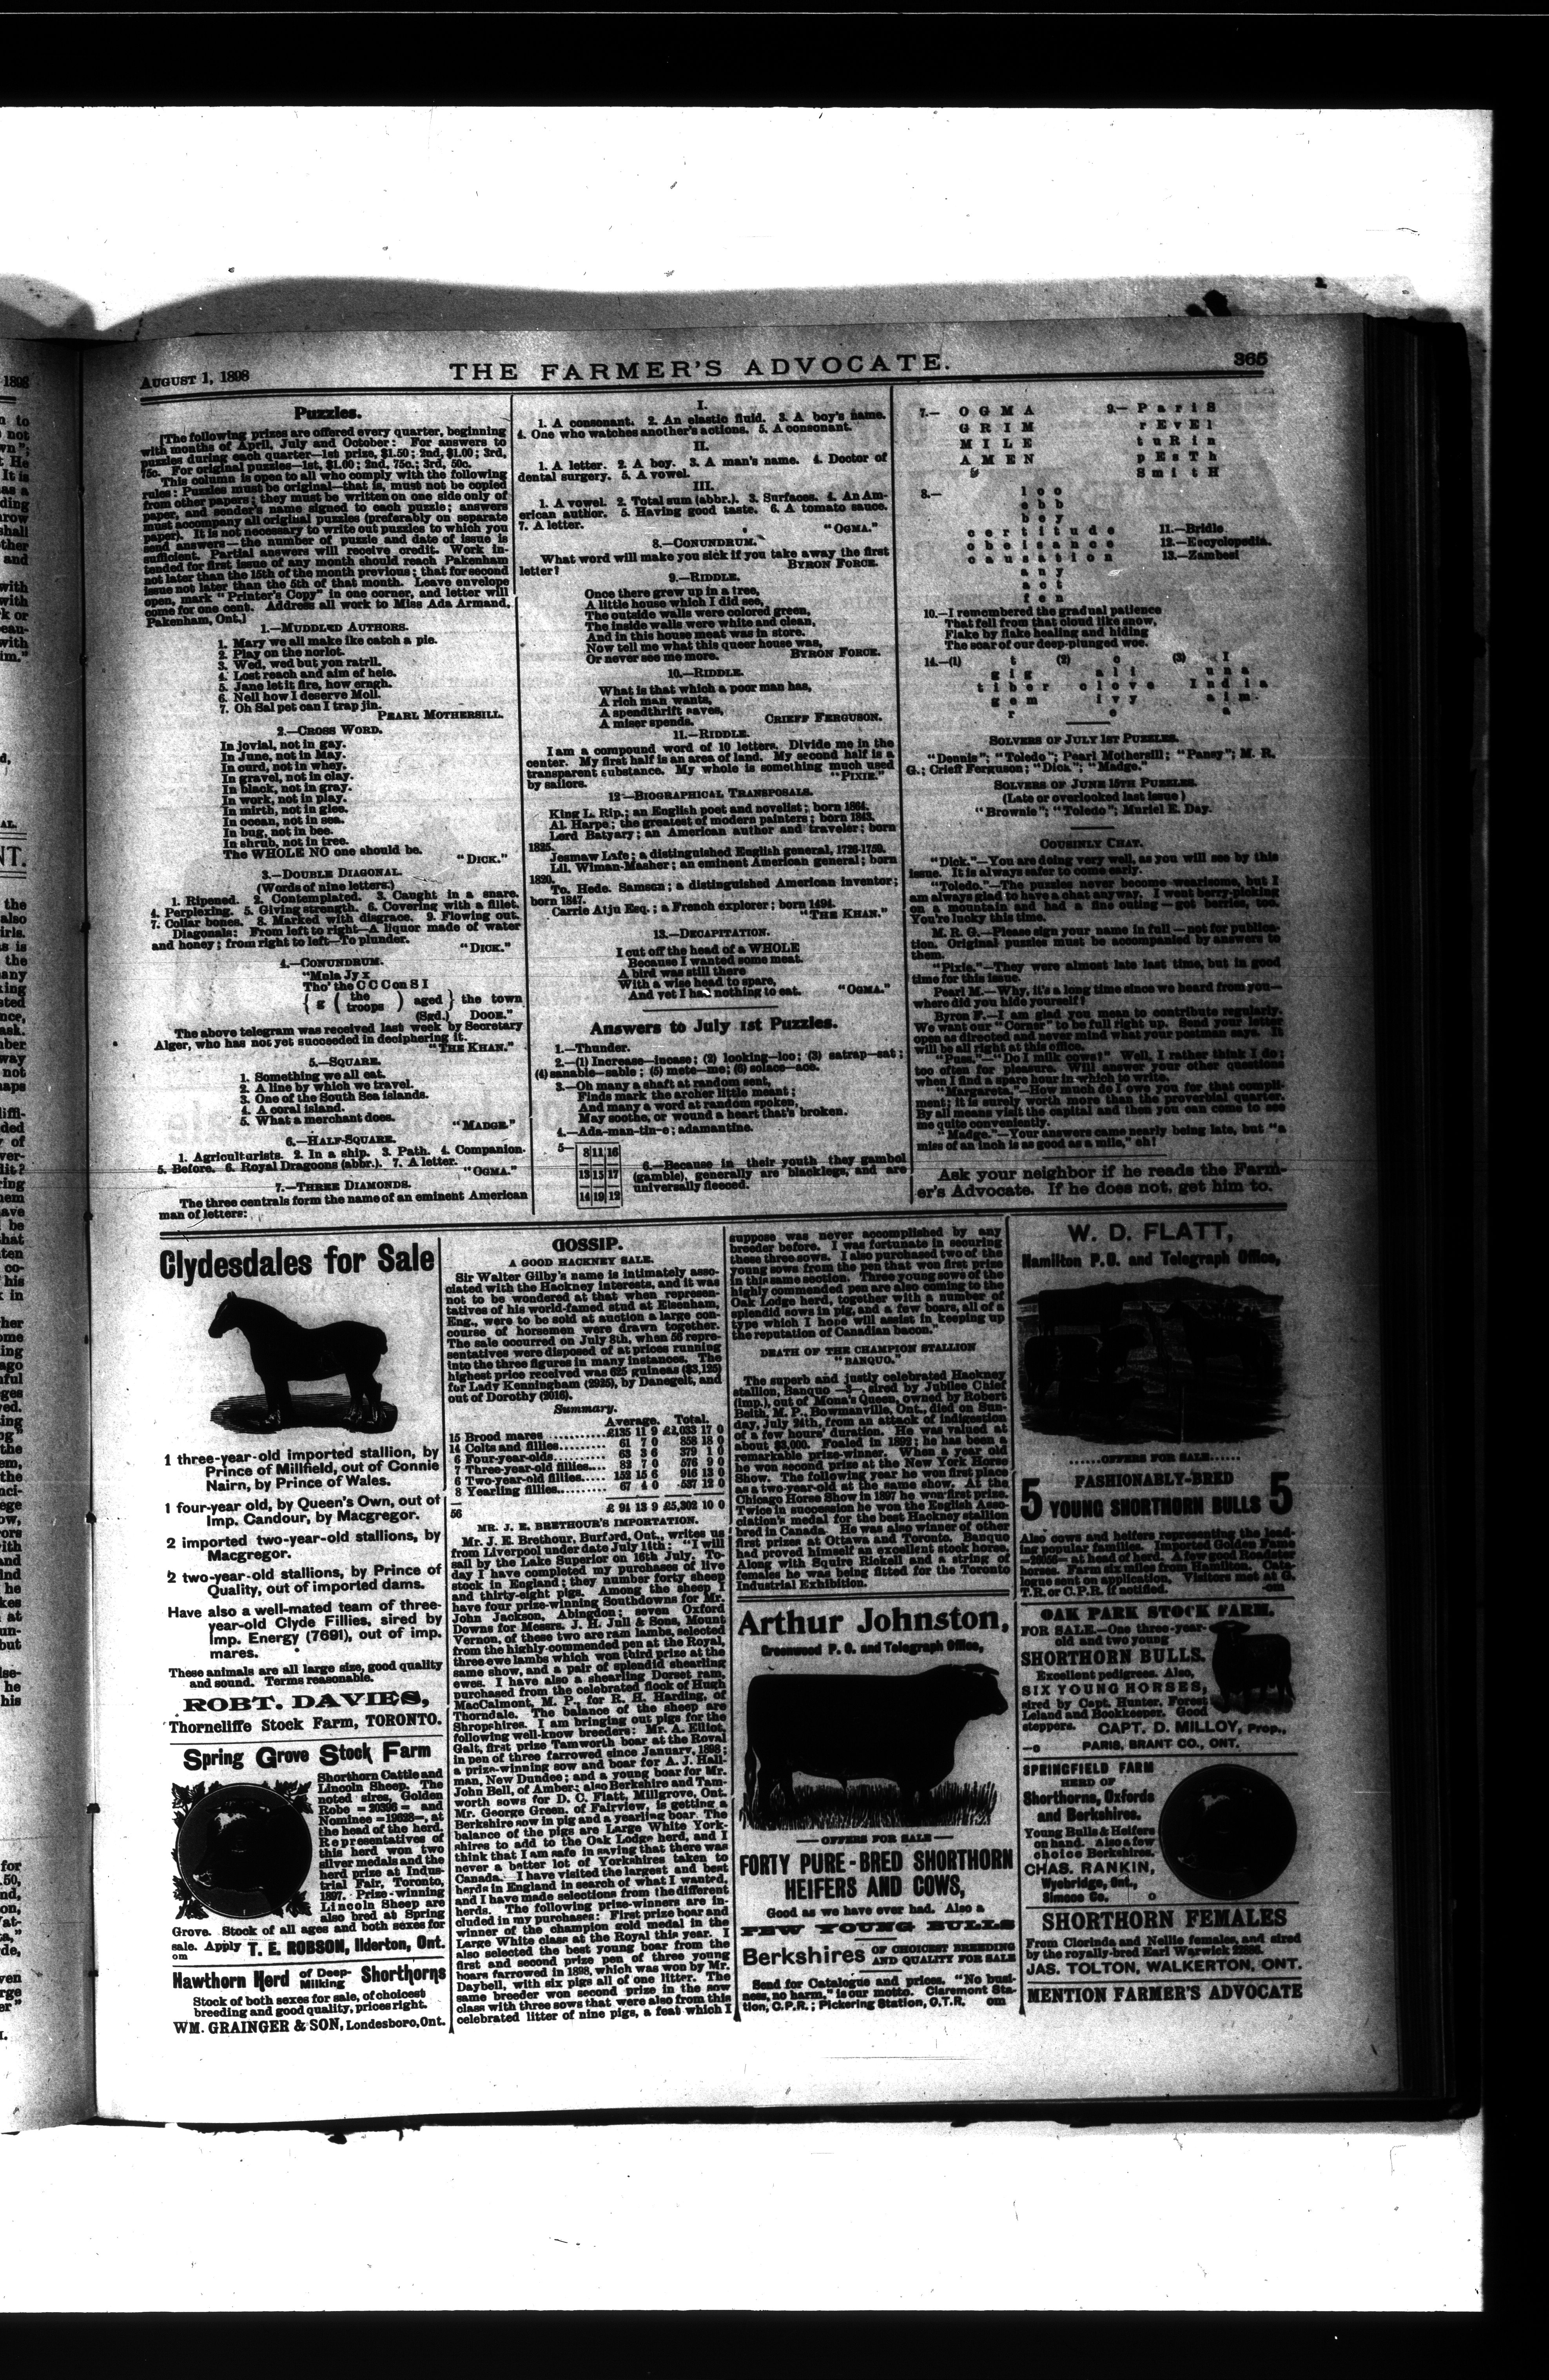 AUGUST 1, 1898
THE FARMER'S ADVOCATE.
365
Puzzles.
[The following prizes are offered every quarter, beginning
with months of April, July and October: For answers to
puzzles during each quarter—1st prize, $1.50; 2nd, $1.00; 3rd,
75c. For original puzzles—1st, $1.00; 2nd, 75c.; 3rd, 50c.
This column is open to all who comply with the following
rules: Puzzles must be original—that is, must not be copied
from other papers; they must be written on one side only of
paper, and sender's name signed to each puzzle; answers
must accompany all original puzzles (preferably on separate
paper). It is not necessary to write out puzzles to which you
send answers—the number of puzzle and date of issue is
sufficient. Partial answers will receive credit. Work in-
tended for first issue of any month should reach Pakenham
not later than the 15th of the month previous; that for second
issue not later than the 5th of that month. Leave envelope
open, mark "Printer's Copy" in one corner, and letter will
come for one cent. Address all work to Miss Ada Armand,
Pakenham, Ont.]
1.—MUDDLED AUTHORS.
1. Mary we all make ike catch a pie.
2. Play on the norlot.
3. Wed, wed but yon ratrll.
4. Lost reach and aim of hele.
5. Jane let it fire, how erngh.
6. Nell how I deserve Moll.
7. Oh Sal pet can I trap jin.
PEARL MOTHERSILL.
2.—CROSS WORD.
In jovial, not in gay.
In June, not in May.
In curd, not in whey.
In gravel, not in clay.
In black, not in gray.
In work, not in play.
In mirth, not in glee.
In ocean, not in sea.
In bug, not in bee.
In shrub, not in tree.
The WHOLE NO one should be.
"DICK."
3.—DOUBLE DIAGONAL.
(Words of nine letters.)
1. Ripened. 2. Contemplated. 3. Caught in a snare.
4. Perplexing. 5. Giving strength. 6. Covering with a fillet.
7. Collar bones. 8. Marked with disgrace. 9. Flowing out.
Diagonals: From left to right—A liquor made of water
and honey; from right to left—To plunder.
"DICK."
4.—CONUNDRUM.
"Mnla Jy x
Tho' the C C C on S I
{ g ( the troops ) aged } the town
(Sgd.) DOOR."
The above telegram was received last week by Secretary
Alger, who has not yet succeeded in deciphering it.
"THE KHAN."
5.—SQUARE.
1. Something we all eat.
2. A line by which we travel.
3. One of the South Sea islands.
4. A coral island.
5. What a merchant does.
"MADGE."
6.—HALF-SQUARE.
1. Agriculturists. 2. In a ship. 3. Path. 4. Companion.
5. Before. 6. Royal Dragoons (abbr.). 7. A letter.
"OGMA."
7.—THREE DIAMONDS.
The three centrals form the name of an eminent American
man of letters:
I.
1. A consonant. 2. An elastic fluid. 3. A boy's name.
4. One who watches another's actions. 5. A consonant.
II.
1. A letter. 2. A boy. 3. A man's name. 4. Doctor of
dental surgery. 5. A vowel.
III.
1. A vowel. 2. Total sum (abbr.). 3. Surfaces. 4. An Am-
erican author. 5. Having good taste. 6. A tomato sauce.
7. A letter.
"OGMA."
8.—CONUNDRUM.
What word will make you sick if you take away the first
letter?
BYRON FORCE.
9.—RIDDLE.
Once there grew up in a tree,
A little house which I did see,
The outside walls were colored green,
The inside walls were white and clean,
And in this house meat was in store.
Now tell me what this queer house was,
Or never see me more.
BYRON FORCE.
10.—RIDDLE.
What is that which a poor man has,
A rich man wants,
A spendthrift saves,
A miser spends.
CRIEFF FERGUSON.
11.—RIDDLE.
I am a compound word of 10 letters. Divide me in the
center. My first half is an area of land. My second half is a
transparent substance. My whole is something much used
by sailors.
"PIXIE."
12—BIOGRAPHICAL TRANSPOSALS.
King L. Rip.; an English poet and novelist; born 1864.
Al. Harpe; the greatest of modern painters; born 1843.
Lord Batyary; an American author and traveler; born
1825.
Jesmaw Lafe; a distinguished English general, 1726-1759.
Lil. Wiman-Masher; an eminent American general; born
1820.
To. Hede. Samson; a distinguished American inventor;
born 1847.
Carrie Atju Esq.; a French explorer; born 1494.
"THE KHAN."
13.—DECAPITATION.
I cut off the head of a WHOLE
Because I wanted some meat.
A bird was still there
With a wise head to spare,
And yet I had nothing to eat.
"OGMA."
Answers to July 1st Puzzles.
1.—Thunder.
2.—(1) Increase—incase; (2) looking—loo; (3) satrap—sat;
(4) sanable—sable; (5) mete—me; (6) solace—ace.
3.—Oh many a shaft at random sent,
Finds mark the archer little meant;
And many a word at random spoken,
May soothe, or wound a heart that's broken.
4.—Ada-man-tin-e; adamantine.
5—
8 11 16
13 15 17
14 19 12
6.—Because in their youth they gambol
(gamble), generally are blacklegs, and are
universally fleeced.
7.— O G M A
G R I M
M I L E
A M E N
9.— P a r i S
r E v E l
t u R i n
p E s T h
S m i t H
8.— l o o
e b b
b e y
c e r t i t u d e
o b e i s a n c e
c a u s a t i o n
a n y
a c t
f e n
11.—Bridle.
12.—Encyclopedia.
13.—Zambesi
10.—I remembered the gradual patience
That fell from that cloud like snow,
Flake by flake healing and hiding
The scar of our deep-plunged woe.
14.—(1) t (2) o (3) I
g i g a l i u n a
t i b e r o l o v e I n d i a
g e m i v y a i m
r e a
SOLVERS OF JULY 1ST PUZZLES.
"Dennis"; "Toledo"; Pearl Mothersill; "Pansy"; M. R.
G.; Crieff Ferguson; "Dick"; "Madge."
SOLVERS OF JUNE 15TH PUZZLES.
(Late or overlooked last issue)
"Brownie"; "Toledo"; Muriel E. Day.
COUSINLY CHAT.
"Dick."—You are doing very well, as you will see by this
issue. It is always safer to come early.
"Toledo."—The puzzles never become wearisome, but I
am always glad to have a chat anyway. I went berry-picking
on a mountain and had a fine outing—got berries, too.
You're lucky this time.
M. R. G.—Please sign your name in full—not for publica-
tion. Original puzzles must be accompanied by answers to
them.
"Pixie."—They were almost late last time, but in good
time for this issue.
Pearl M.—Why, it's a long time since we heard from you—
where did you hide yourself?
Byron F.—I am glad you mean to contribute regularly.
We want our "Corner" to be full right up. Send your letter
open as directed and never mind what your postman says. It
will be all right at this office.
"Puss."—"Do I milk cows?" Well, I rather think I do;
too often for pleasure. Will answer your other questions
when I find a spare hour in which to write.
"Margareta."—How much do I owe you for that compli-
ment; it is surely worth more than the proverbial quarter.
By all means visit the capital and then you can come to see
me quite conveniently.
"Madge."—Your answers came nearly being late, but "a
miss of an inch is as good as a mile," eh!
Ask your neighbor if he reads the Farm-
er's Advocate. If he does not, get him to.
Clydesdales for Sale
1 three-year-old imported stallion, by
Prince of Millfield, out of Connie
Nairn, by Prince of Wales.
1 four-year old, by Queen's Own, out of
Imp. Candour, by Macgregor.
2 imported two-year-old stallions, by
Macgregor.
2 two-year-old stallions, by Prince of
Quality, out of imported dams.
Have also a well-mated team of three-
year-old Clyde Fillies, sired by
Imp. Energy (7691), out of imp.
mares.
These animals are all large size, good quality
and sound. Terms reasonable.
ROBT. DAVIES,
Thorncliffe Stock Farm, TORONTO.
Spring Grove Stock Farm
Shorthorn Cattle and
Lincoln Sheep. The
noted sires, Golden
Robe =20396= and
Nominee =19628=, at
the head of the herd.
Representatives of
this herd won two
silver medals and the
herd prize at Indus-
trial Fair, Toronto,
1897. Prize-winning
Lincoln Sheep are
also bred at Spring
Grove. Stock of all ages and both sexes for
sale. Apply T. E. ROBSON, Ilderton, Ont.
om
Hawthorn Herd of Deep-Milking Shorthorns
Stock of both sexes for sale, of choicest
breeding and good quality, prices right.
WM. GRAINGER & SON, Londesboro, Ont.
GOSSIP.
A GOOD HACKNEY SALE.
Sir Walter Gilby's name is intimately asso-
ciated with the Hackney interests, and it was
not to be wondered at that when represen-
tatives of his world-famed stud at Elsenham,
Eng., were to be sold at auction a large con-
course of horsemen were drawn together.
The sale occurred on July 8th, when 56 repre-
sentatives were disposed of at prices running
into the three figures in many instances. The
highest price received was 625 guineas ($3,125)
for Lady Kenningham (2925), by Danegelt, and
out of Dorothy (2016).
Summary.
Average. Total.
15 Brood mares ........... £135 11 9 £2,033 17 0
14 Colts and fillies......... 61 7 0 858 18 0
6 Four-year-olds.......... 63 3 6 379 1 0
7 Three-year-old fillies.... 82 7 0 576 9 0
6 Two-year-old fillies..... 152 15 6 916 13 0
8 Yearling fillies.......... 67 4 0 537 12 0
56 £ 94 13 9 £5,302 10 0
MR. J. E. BRETHOUR'S IMPORTATION.
Mr. J. E. Brethour, Burford, Ont., writes us
from Liverpool under date July 11th: "I will
sail by the Lake Superior on 16th July. To-
day I have completed my purchases of live
stock in England; they number forty sheep
and thirty-eight pigs. Among the sheep I
have four prize-winning Southdowns for Mr.
John Jackson, Abingdon; seven Oxford
Downs for Messrs. J. H. Jull & Sons, Mount
Vernon, of these two are ram lambs, selected
from the highly-commended pen at the Royal,
three ewe lambs which won third prize at the
same show, and a pair of splendid shearling
ewes. I have also a shearling Dorset ram,
purchased from the celebrated flock of Hugh
MacCalmont, M. P., for R. H. Harding, of
Thorndale. The balance of the sheep are
Shropshires. I am bringing out pigs for the
following well-know breeders: Mr. A. Elliot,
Galt, first prize Tamworth boar at the Royal
in pen of three farrowed since January, 1898;
a prize-winning sow and boar for A. J. Hall-
man, New Dundee; and a young boar for Mr.
John Bell, of Amber; also Berkshire and Tam-
worth sows for D. C. Flatt, Millgrove, Ont.
Mr. George Green, of Fairview, is getting a
Berkshire sow in pig and a yearling boar. The
balance of the pigs are Large White York-
shires to add to the Oak Lodge herd, and I
think that I am safe in saying that there was
never a better lot of Yorkshires taken to
Canada. I have visited the largest and best
herds in England in search of what I wanted,
and I have made selections from the different
herds. The following prize-winners are in-
cluded in my purchases: First prize boar and
winner of the champion gold medal in the
Large White class at the Royal this year. I
also selected the best young boar from the
first and second prize pen of three young
boars farrowed in 1898, which was won by Mr.
Daybell, with six pigs all of one litter. The
same breeder won second prize in the sow
class with three sows that were also from this
celebrated litter of nine pigs, a feat which I
suppose was never accomplished by any
breeder before. I was fortunate in securing
these three sows. I also purchased two of the
young sows from the pen that won first prize
in this same section. Three young sows of the
highly commended pen are also coming to the
Oak Lodge herd, together with a number of
splendid sows in pig, and a few boars, all of a
type which I hope will assist in keeping up
the reputation of Canadian bacon."
DEATH OF THE CHAMPION STALLION
"BANQUO."
The superb and justly celebrated Hackney
stallion, Banquo —3—, sired by Jubilee Chief
(imp.), out of Mona's Queen, owned by Robert
Beith, M. P., Bowmanville, Ont., died on Sun-
day, July 24th, from an attack of indigestion
of a few hours' duration. He was valued at
about $3,000. Foaled in 1892; he has been a
remarkable prize-winner. When a year old
he won second prize at the New York Horse
Show. The following year he won first place
as a two-year-old at the same show. At the
Chicago Horse Show in 1897 he won first prize.
Twice in succession he won the English Asso-
ciation's medal for the best Hackney stallion
bred in Canada. He was also winner of other
first prizes at Ottawa and Toronto. Banquo
had proved himself an excellent stock horse.
Along with Squire Rickell and a string of
females he was being fitted for the Toronto
Industrial Exhibition.
Arthur Johnston,
Greenwood P. O. and Telegraph Office,
OFFERS FOR SALE
FORTY PURE-BRED SHORTHORN
HEIFERS AND COWS,
Good as we have ever had. Also a
FEW YOUNG BULLS
Berkshires OF CHOICEST BREEDING
AND QUALITY FOR SALE
Send for Catalogue and prices. "No busi-
ness, no harm," is our motto. Claremont Sta-
tion, C.P.R.; Pickering Station, G.T.R. om
W. D. FLATT,
Hamilton P.O. and Telegraph Office,
......OFFERS FOR SALE......
5 FASHIONABLY-BRED
YOUNG SHORTHORN BULLS 5
Also cows and heifers representing the lead-
ing popular families. Imported Golden Fame
=26056= at head of herd. A few good Roadster
horses. Farm six miles from Hamilton. Cata-
logue sent on application. Visitors met at G.
T.R. or C.P.R. if notified. -om
OAK PARK STOCK FARM.
FOR SALE.—One three-year-
old and two young
SHORTHORN BULLS.
Excellent pedigrees. Also,
SIX YOUNG HORSES,
sired by Capt. Hunter, Forest
Leland and Bookkeeper. Good
steppers. CAPT. D. MILLOY, Prop.,
-o PARIS, BRANT CO., ONT.
SPRINGFIELD FARM
HERD OF
Shorthorns, Oxfords
and Berkshires.
Young Bulls & Heifers
on hand. Also a few
choice Berkshires.
CHAS. RANKIN,
Wyebridge, Ont.,
Simcoe Co. o
SHORTHORN FEMALES
From Clorinda and Nellie females, and sired
by the royally-bred Earl Warwick 22866.
JAS. TOLTON, WALKERTON, ONT.
MENTION FARMER'S ADVOCATE